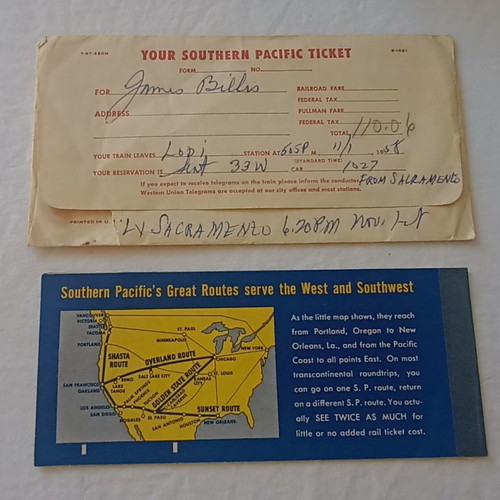 T-97-63CM
S-1021
YOUR SOUTHERN PACIFIC TICKET
FORM NO.
FOR James Billis
RAILROAD FARE
FEDERAL TAX
ADDRESS
PULLMAN FARE
FEDERAL TAX
TOTAL 110.06
YOUR TRAIN LEAVES Lodi STATION AT 505P M. 11/1 1958
(STANDARD TIME)
YOUR RESERVATION IS Seat 33W CAR 1027
If you expect to receive telegrams on the train please inform the conductor. FROM SACRAMENTO
Western Union Telegrams are accepted at our city offices and most stations.
PRINTED IN U.
LV SACRAMENTO 6:20PM NOV. 1st
Southern Pacific's Great Routes serve the West and Southwest
VANCOUVER
VICTORIA
SEATTLE
TACOMA
PORTLAND
ST. PAUL
MINNEAPOLIS
NEW YORK
SHASTA ROUTE
OVERLAND ROUTE
CHICAGO
RENO
LAKE TAHOE
SALT LAKE CITY
SAN FRANCISCO
OAKLAND
ST. LOUIS
KANSAS CITY
GOLDEN STATE ROUTE
PALM SPRINGS
PHOENIX
TUCSON
CARLSBAD CAVERNS
LOS ANGELES
SAN DIEGO
NOGALES
EL PASO
SUNSET ROUTE
SAN ANTONIO
HOUSTON
NEW ORLEANS
As the little map shows, they reach
from Portland, Oregon to New
Orleans, La., and from the Pacific
Coast to all points East. On most
transcontinental roundtrips, you
can go on one S. P. route, return
on a different S. P. route. You actu-
ally SEE TWICE AS MUCH for
little or no added rail ticket cost.